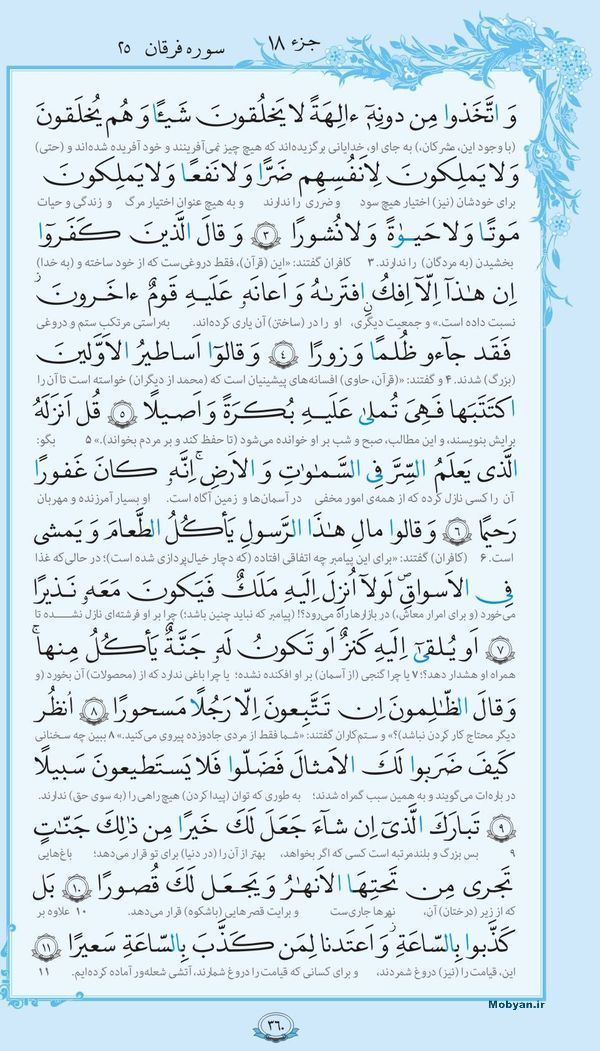 جزء ۱۸
سوره فرقان ۲۵
وَ اتَّخَذوا مِن دونِهٖٓ ءالِهَةً لا يَخلُقونَ شَيـًٔا وَ هُم يُخلَقونَ
(با وجود این، مشرکان،) به جای او، خدایانی برگزیده‌اند که هیچ چیز نمی‌آفرینند و خود آفریده شده‌اند و (حتی)
وَلا يَملِكونَ لِاَنفُسِهِم ضَرًّا وَلا نَفعًا وَلا يَملِكونَ
برای خودشان (نیز) اختیار هیچ سود و ضرری را ندارند و به هیچ عنوان اختیار مرگ و زندگی و حیات
مَوتًا وَلا حَيـٰوةً وَلا نُشورًا ﴿۳﴾ وَ قالَ الَّذينَ كَفَروٓا
بخشیدن (به مردگان) را ندارند. ۳ کافران گفتند: «این (قرآن)، فقط دروغی‌ست که از خود ساخته و (به خدا)
اِن هـٰذَآ اِلّآ اِفكٌ افتَرىٰهُ وَ اَعانَهٗ عَلَيهِ قَومٌ ءاخَرونَ ۖ
نسبت داده است.» و جمعیت دیگری، او را در (ساختن) آن یاری کرده‌اند. به‌راستی مرتکب ستم و دروغی
فَقَد جآءو ظُلمًا وَ زورًا ﴿۴﴾ وَ قالوٓا اَساطيرُ الاَوَّلينَ
(بزرگ) شدند. ۴ و گفتند: «(قرآن، حاوی) افسانه‌های پیشینیان است که (محمد از دیگران) خواسته است تا آن را
اكتَتَبَها فَهِىَ تُملىٰ عَلَيهِ بُكرَةً وَ اَصيلًا ﴿۵﴾ قُل اَنزَلَهُ
برایش بنویسند، و این مطالب، صبح و شب بر او خوانده می‌شود (تا حفظ کند و بر مردم بخواند).» ۵ بگو:
الَّذى يَعلَمُ السِّرَّ فِى السَّمـٰوٰتِ وَ الاَرضِ ۚ اِنَّهٗ كانَ غَفورًا
آن را کسی نازل کرده که از همه‌ی امور مخفی در آسمان‌ها و زمین آگاه است. او بسیار آمرزنده و مهربان
رَحيمًا ﴿۶﴾ وَ قالوا مالِ هـٰذَا الرَّسولِ يَأكُلُ الطَّعامَ وَ يَمشى
است. ۶ (کافران) گفتند: «برای این پیامبر چه اتفاقی افتاده (که دچار خیال‌پردازی شده است)؛ در حالی که غذا
فِى الاَسواقِ ۙ لَولآ اُنزِلَ اِلَيهِ مَلَكٌ فَيَكونَ مَعَهٗ نَذيرًا
می‌خورد (و برای امرار معاش)، در بازارها راه می‌رود؟! (پیامبر که نباید چنین باشد؛) چرا بر او فرشته‌ای نازل نشده تا
﴿۷﴾ اَو يُلقىٰٓ اِلَيهِ كَنزٌ اَو تَكونُ لَهٗ جَنَّةٌ يَأكُلُ مِنها ۚ
همراه او هشدار دهد؟! ۷ یا چرا گنجی (از آسمان) بر او افکنده نشده؛ یا چرا باغی ندارد که از (محصولات) آن بخورد (و
وَ قالَ الظّـٰلِمونَ اِن تَتَّبِعونَ اِلّا رَجُلًا مَسحورًا ﴿۸﴾ اُنظُر
دیگر محتاج کار کردن نباشد)؟» و ستم‌کاران گفتند: «شما فقط از مردی جادوزده پیروی می‌کنید.» ۸ ببین چه سخنانی
كَيفَ ضَرَبوا لَكَ الاَمثالَ فَضَلّوا فَلا يَستَطيعونَ سَبيلًا
در باره‌ات می‌گویند و به همین سبب گمراه شدند؛ به طوری که توان (پیدا کردن) هیچ راهی را (به سوی حق) ندارند.
﴿۹﴾ تَبارَكَ الَّذىٓ اِن شآءَ جَعَلَ لَكَ خَيرًا مِن ذٰلِكَ جَنّـٰتٍ
۹ بس بزرگ و بلندمرتبه است کسی که اگر بخواهد، بهتر از آن را (در دنیا) برای تو قرار می‌دهد؛ باغ‌هایی
تَجرى مِن تَحتِهَا الاَنهـٰرُ وَ يَجعَل لَكَ قُصورًا ﴿۱۰﴾ بَل
که از زیر (درختان) آن، نهرها جاری‌ست و برایت قصرهایی (باشکوه) قرار می‌دهد. ۱۰ علاوه بر
كَذَّبوا بِالسّاعَةِ ۖ وَ اَعتَدنا لِمَن كَذَّبَ بِالسّاعَةِ سَعيرًا ﴿۱۱﴾
این، قیامت را (نیز) دروغ شمردند، و برای کسانی که قیامت را دروغ شمارند، آتشی شعله‌ور آماده کرده‌ایم. ۱۱
Mobyan.ir
۳۶۰